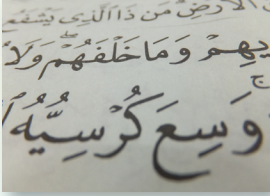 الْأَرْضِ مَن ذَا الَّذِي يَشْفَعُ
يهِمْ وَمَا خَلْفَهُمْ ۖ وَلَا
ۚ وَسِعَ كُرْسِيُّهُ